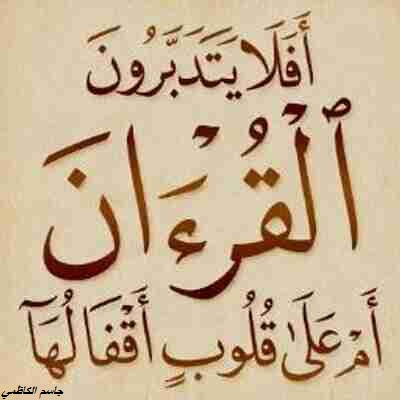 أَفَلَا يَتَدَبَّرُونَ
ٱلْقُرْءَانَ
أَمْ عَلَىٰ قُلُوبٍ أَقْفَالُهَآ
جاسم الكاظمي